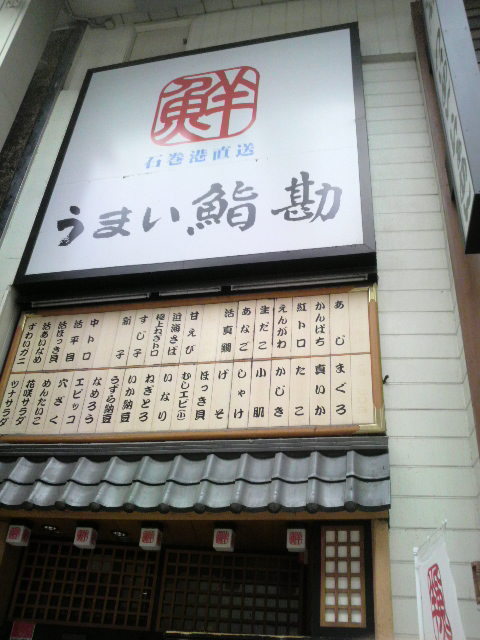 鮮
石巻港直送
うまい鮨勘
あじ
かんぱち
紅トロ
えんがわ
生だこ
あなご
活真鯛
甘えび
近海さば
極上ねぎトロ
すじ子
新子
中トロ
活平目
活ほっき貝
活あいなめ
ずわいガニ
まぐろ
真いか
たこ
かじき
小肌
しゃけ
げそ
ほっき貝
むしエビ
いなり
ねぎとろ
いか納豆
うずら納豆
なめろう
エビッコ
穴ざく
めんたいこ
花咲サラダ
ツナサラダ
鮮
鮮
鮮
鮮
鮮
鮮